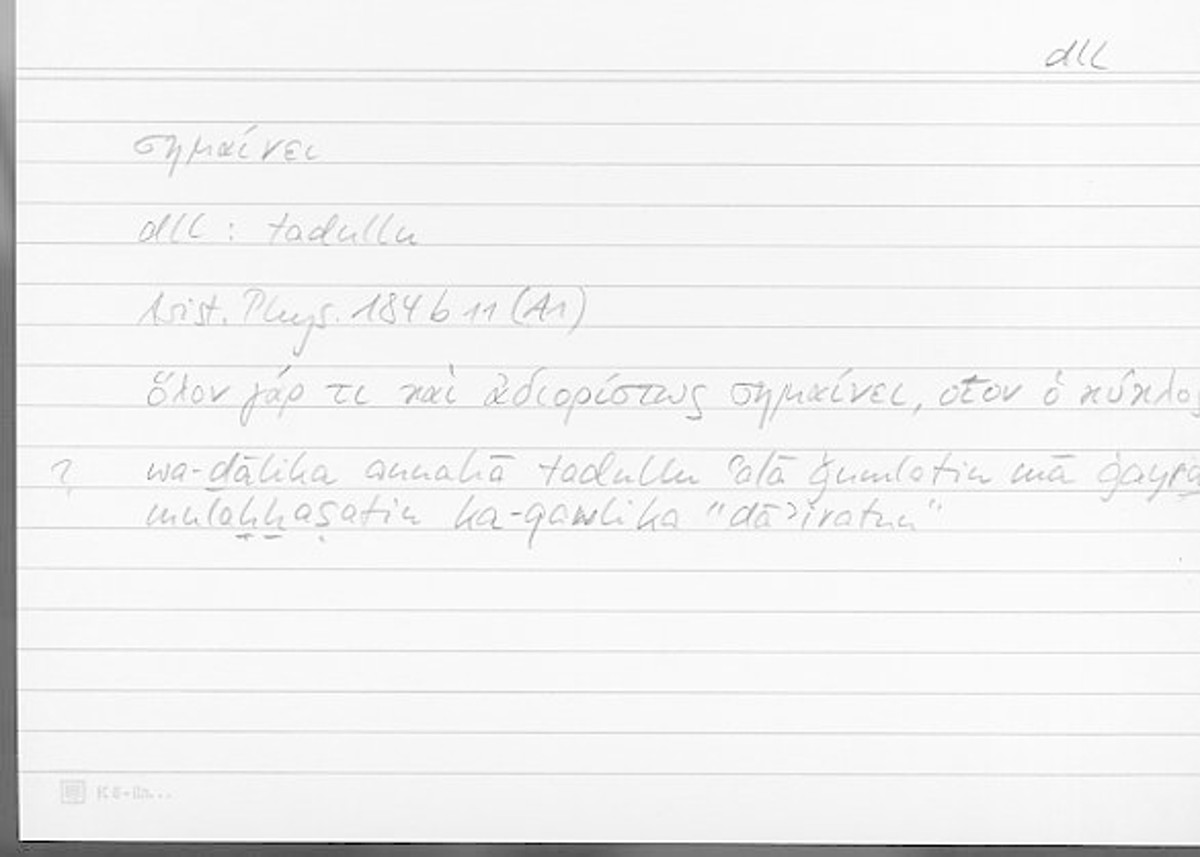 dll
σημαίνει
dll : tadullu
Arist. Phys. 184 b 11 (A1)
ὅλον γάρ τι καὶ ἀδιορίστως σημαίνει, οἷον ὁ κύκλος
? wa-ḏālika annahā tadullu ʿalā ǧumlatin mā ġayri
mulaḫḫaṣatin ka-qawlika "dāʾiratun"